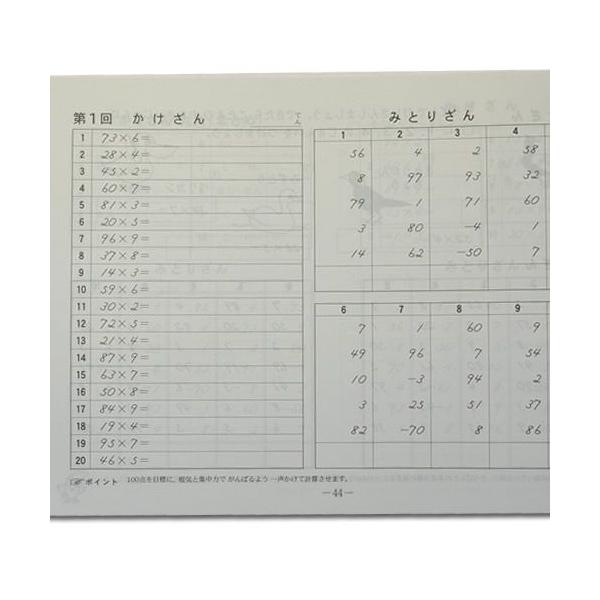 第1回 かけざん てん
1 73×6=
2 28×4=
3 45×2=
4 60×7=
5 81×3=
6 20×5=
7 96×9=
8 37×8=
9 14×3=
10 59×6=
11 30×2=
12 72×5=
13 21×4=
14 87×9=
15 63×7=
16 50×8=
17 84×9=
18 19×4=
19 95×7=
20 46×5=
みとりざん
1 2 3 4
56 4 2 58
8 97 93 32
79 1 71 60
3 80 -4 1
14 62 -50 7
6 7 8 9
7 1 60 9
49 96 7 54
10 -3 94 2
3 25 51 37
82 -70 8 86
ポイント 100点を目標に、根気と集中力で がんばるよう 一声かけて計算させます。
―44―